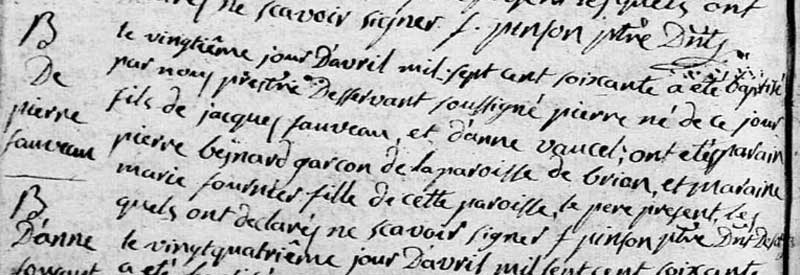 ne scavoir signer. f. pinson ptre Dnt
B
De
pierre
fauveau
le vingtiême jour D'avril mil sept cent soixante a été baptisé
par nous prestre Desservant soussigné pierre né de ce jour
fils de jacques fauveau, et d'anne vaucel; ont étés parain
pierre bejnard garcon de la paroisse de brion, et maraine
marie fournier fille de cette paroisse, le pere present, les
quels ont declarés ne scavoir signer f pinson ptre Dnt
B
D'anne
le vingtquatriême jour D'avril mil sept cent soixante
a été